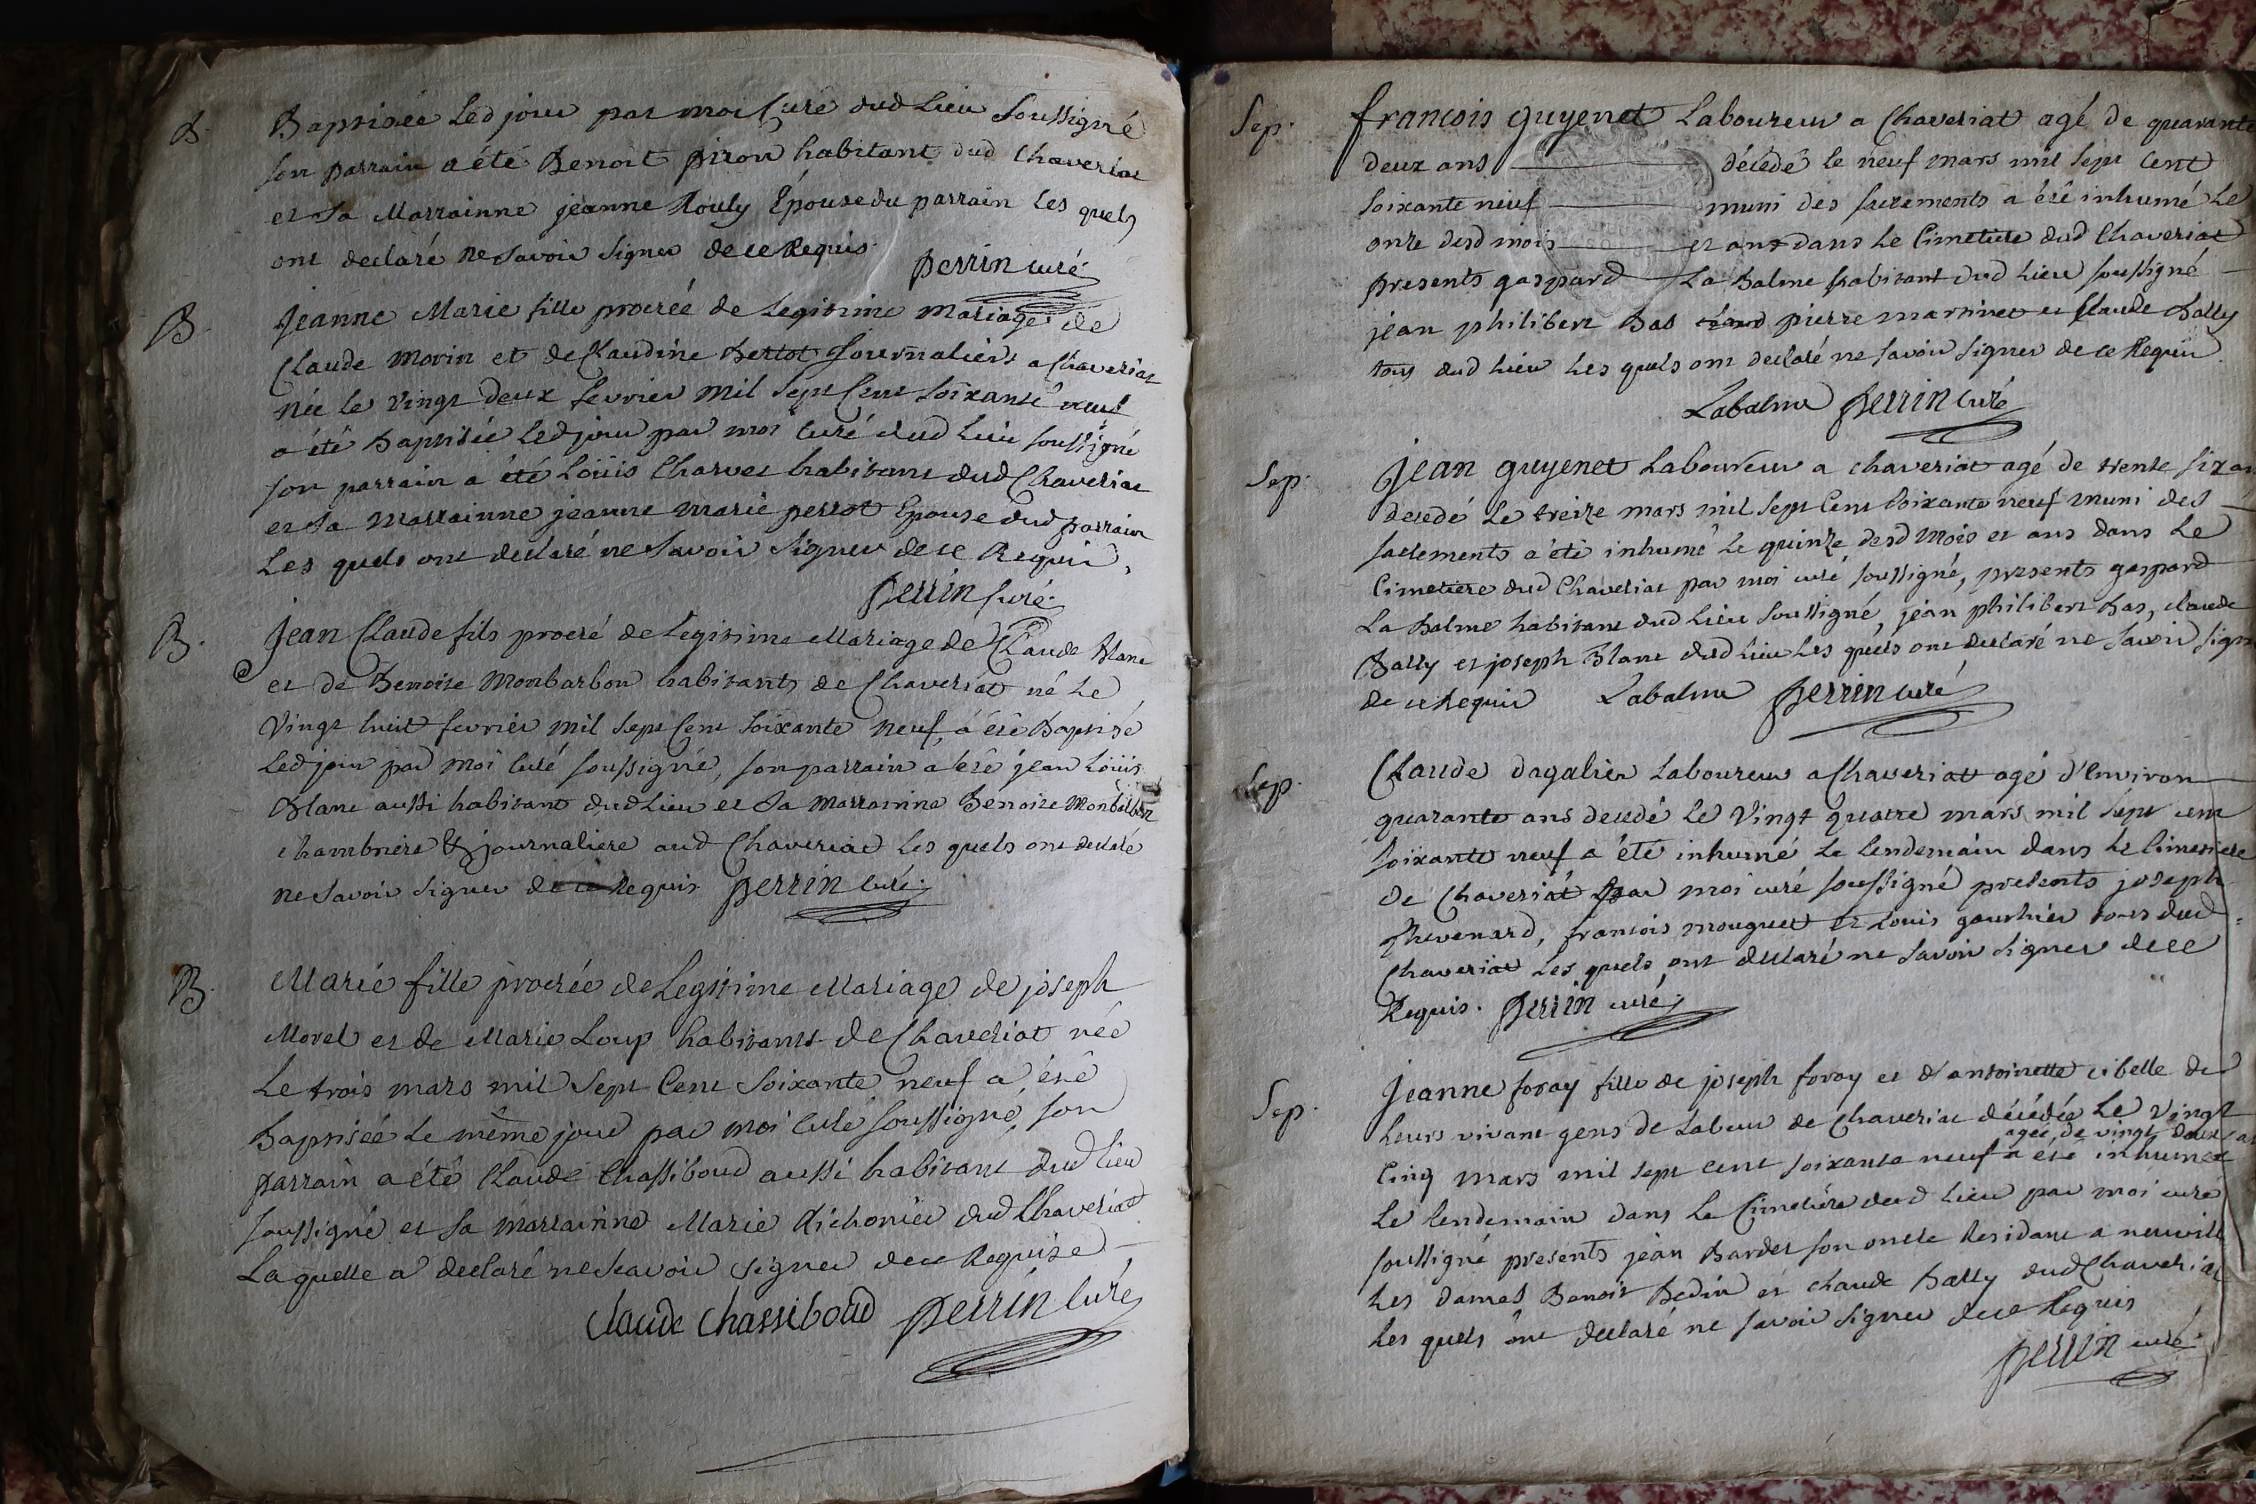 B.
Baptisée led jour par moi Curé dud Lieu soussigné
son parrain a été Benoit piron habitant dud Chaveriat
et sa Marrainne jeanne Rouly Épouse du parrain les quels
ont declaré ne savoir signer de ce Requis.
perrin curé
B.
Jeanne Marie fille procréé de Legitime Mariage de
Claude Morin et de Claudine Bertot Journaliers a Chaveriat
née le vingt deux fevrier mil sept Cent soixante neuf
a été Baptisée led jour par moi curé dud Lieu soussigné
son parrain a été Loüis Charvet habitant dud Chaveriat
et sa Marrainne jeanne marie perrot Epouse dud parrain
Les quels ont declaré ne savoir signer de ce Requis,
perrin curé
B.
Jean Claude fils procréé de Legitime Mariage de Claude Blanc
et de Benoite Monbarbon habitants de Chaveriat né Le
Vingt huit fevrier mil sept Cent soixante neuf, a été Baptisé
Led jour par moi Curé soussigné, son parrain a été jean Loüis
Blanc aussi habitant dud Lieu et sa Marrainne Benoite Monbarbon
chambriere & journaliere aud Chaveriat Les quels ont declaré
ne savoir signer de ce Requis perrin curé.
B.
Marie fille procréée de Legitime Mariage de joseph
Morel et de Marie Loup habitants de Chaveriat née
Le trois mars mil sept Cent soixante neuf a été
Baptisée Le même jour par moi Curé soussigné, son
parrain a été Claude Chassiboud aussi habitant dud lieu
soussigné et sa marrainne Marie Richonier dud Chaveriat
Laquelle a declaré ne scavoir signer de ce Requise
Claude Chassiboud perrin Curé
Sep.
francois guyenet Laboureur a Chaveriat agé de quarante
deux ans décédé le neuf mars mil sept Cent
soixante neuf muni des sacrements a été inhumé Le
onze desd mois et an dans Le Cimetiere dud Chaveriat
presents gaspard La Balme habitant dud Lieu soussigné
jean philibert Bas pierre martinet et Claude Bally
tous dud Lieu Les quels ont declaré ne savoir signer de ce Requis
Labalme perrin curé
Sep.
Jean guyenet Laboureur a chaveriat agé de trente six an
decedé Le treize mars mil sept Cent soixante neuf muni des
sacements a été inhumé Le quinze desd mois et ans dans Le
Cimetiere dud Chaveriat par moi curé soussigné, presents gaspard
La Balme habitant dud Lieu soussigné, jean philibert Bas, claude
Bally et joseph Blanc dud Lieu Les quels ont declaré ne savoir sign
de ce Requis Labalme perrin curé
Sep.
Claude dagalier Laboureur a Chaveriat agé d'environ
quarante ans decedé Le Vingt quatre mars mil sept cent
soixante neuf a été inhumé Le lendemain dans Le Cimetiere
de Chaveriat par moi curé soussigné presents joseph
thevenard, francois mouguet et Louis gauthier tous dud
Chaveriat Les quels ont declaré ne savoir signer de ce
Requis. perrin curé.
Sep.
Jeanne foray fille de joseph foray et d'antoinette cibelle de
Leurs vivant gens de Labeur de Chaveriat décédée Le vingt
agée de vingt deux
Cinq mars mil sept cent soixante neuf a été inhumée
Le lendemain dans Le Cimetière dud Lieu par moi curé
soussigné presents jean Bardet son oncle Residant a neuville
Les dames Benoit Bedin et claude Bally dud Chaveriat
Les quels ont declaré ne savoir signer de ce Requis
perrin curé.